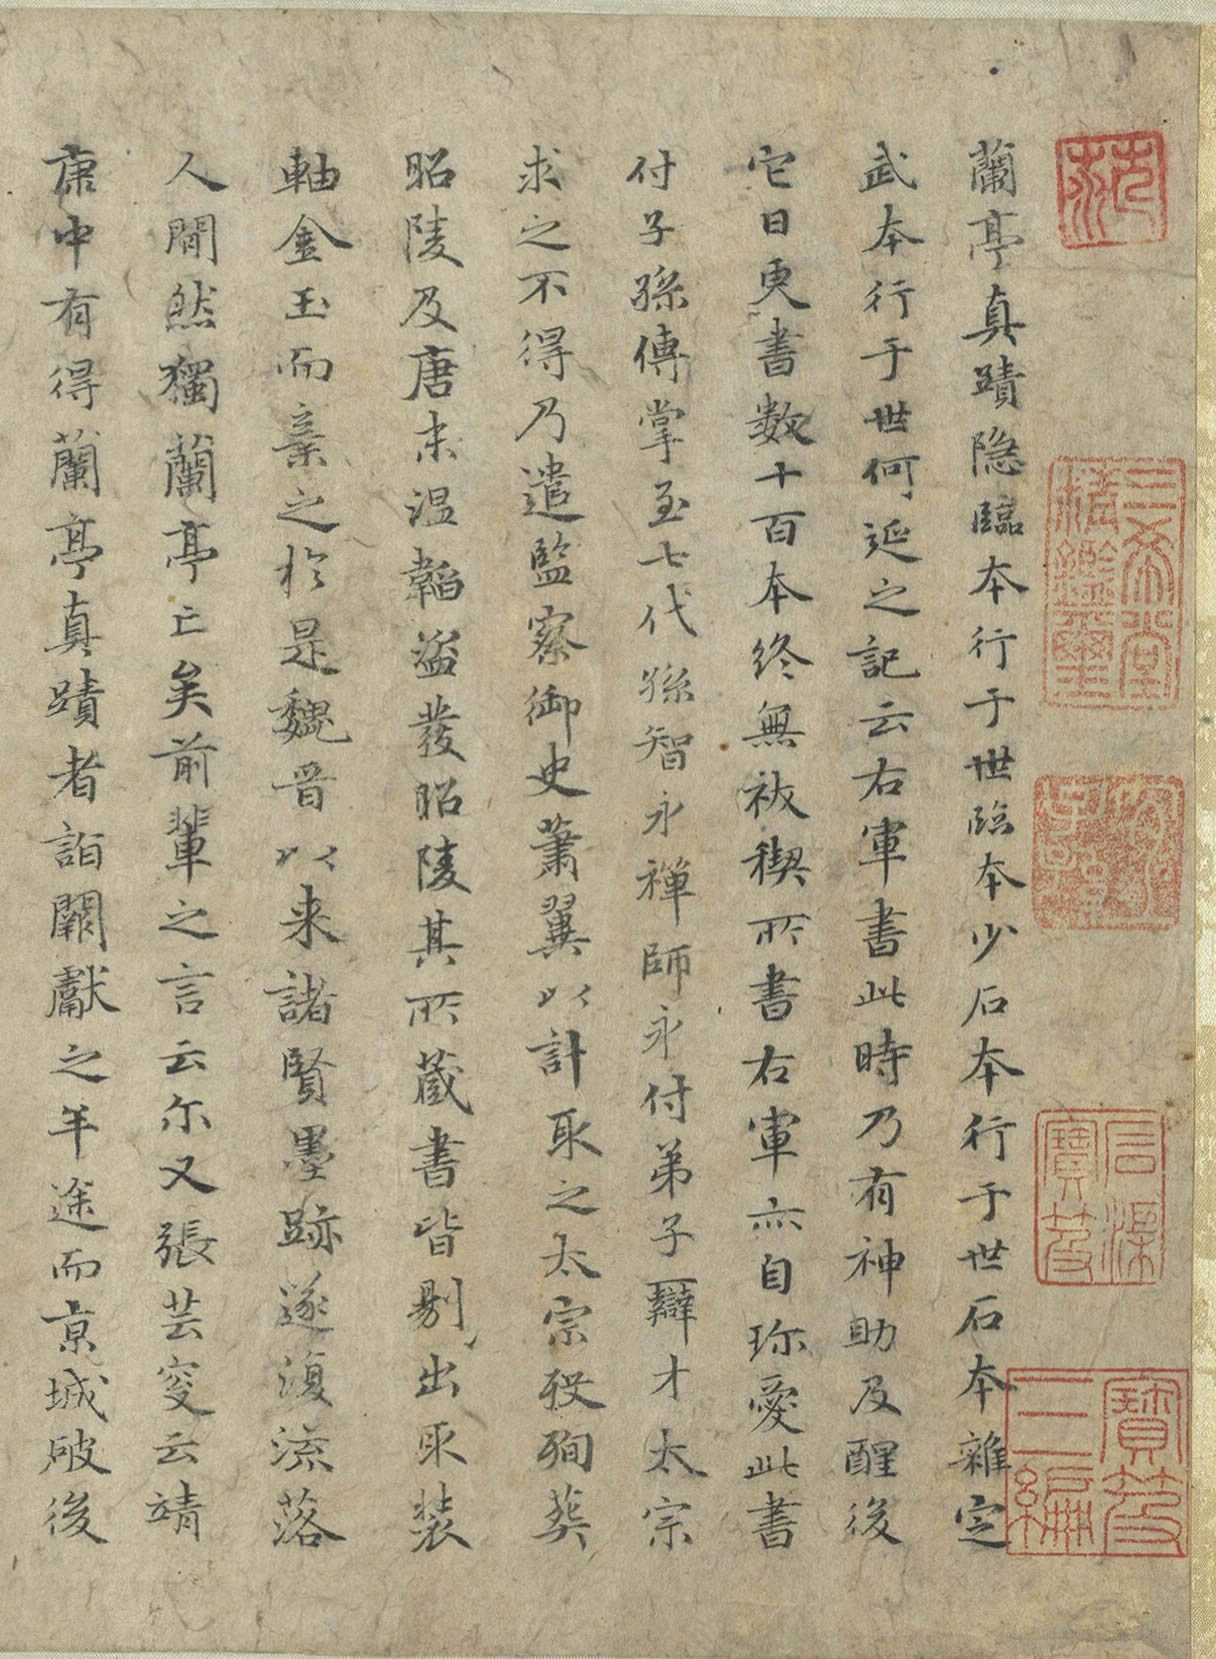 蘭亭真蹟隐臨本行于世臨本少石本行于世石本雜定
武本行于世何延之記云右軍書此時乃有神助及醒後
它日更書數十百本終無祓稧所書右軍亦自珎愛此書
付子孫傳掌至七代孫智永禪師永付弟子辯才太宗
求之不得乃遣監察御史蕭翼以計取之太宗殁殉葵
昭陵及唐末温韜盜發昭陵其所蔵書皆剔出取装
軸金玉而棄之於是魏晉以来諸賢墨跡遂復流落
人間然獨蘭亭亡矣前輩之言云尔又張芸叟云靖
康中有得蘭亭真蹟者詣闕獻之半途而京城破後
三希堂精鑑璽
石渠寶笈
寶笈三編